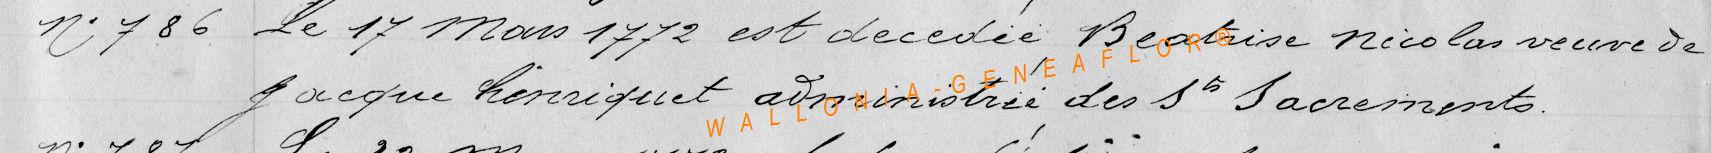 N° 786 Le 17 Mars 1772 est decedée Beatrise Nicolas veuve de
Jacque henriquet administrée des Sts Sacrements.
WALLONIA-GENEAFLOR®